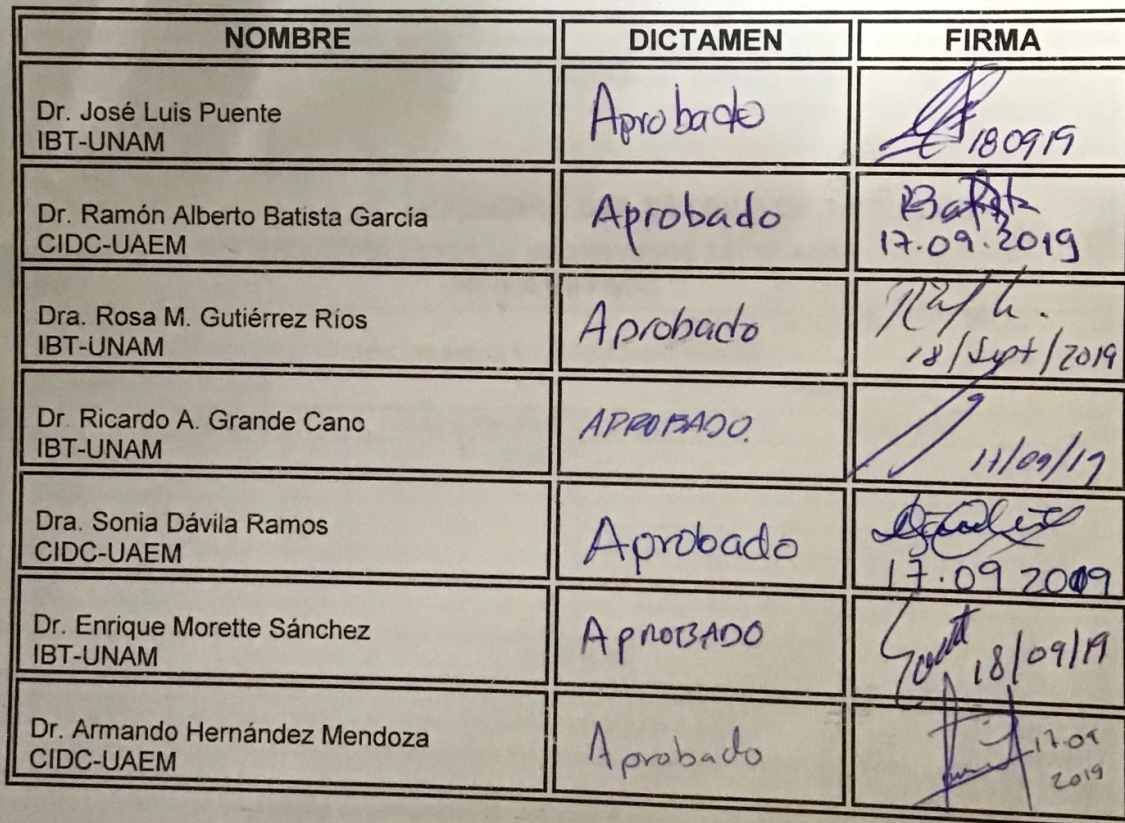 NOMBRE DICTAMEN FIRMA
Dr. José Luis Puente
IBT-UNAM
Aprobado
180919
Dr. Ramón Alberto Batista García
CIDC-UAEM
Aprobado
17.09.2019
Dra. Rosa M. Gutiérrez Ríos
IBT-UNAM
Aprobado
18/Sept/2019
Dr. Ricardo A. Grande Cano
IBT-UNAM
APROBADO.
Dra. Sonia Dávila Ramos
CIDC-UAEM
Aprobado
17.09 2019
Dr. Enrique Morette Sánchez
IBT-UNAM
APROBADO
18/09/19
Dr. Armando Hernández Mendoza
CIDC-UAEM
Aprobado
17.09
2019